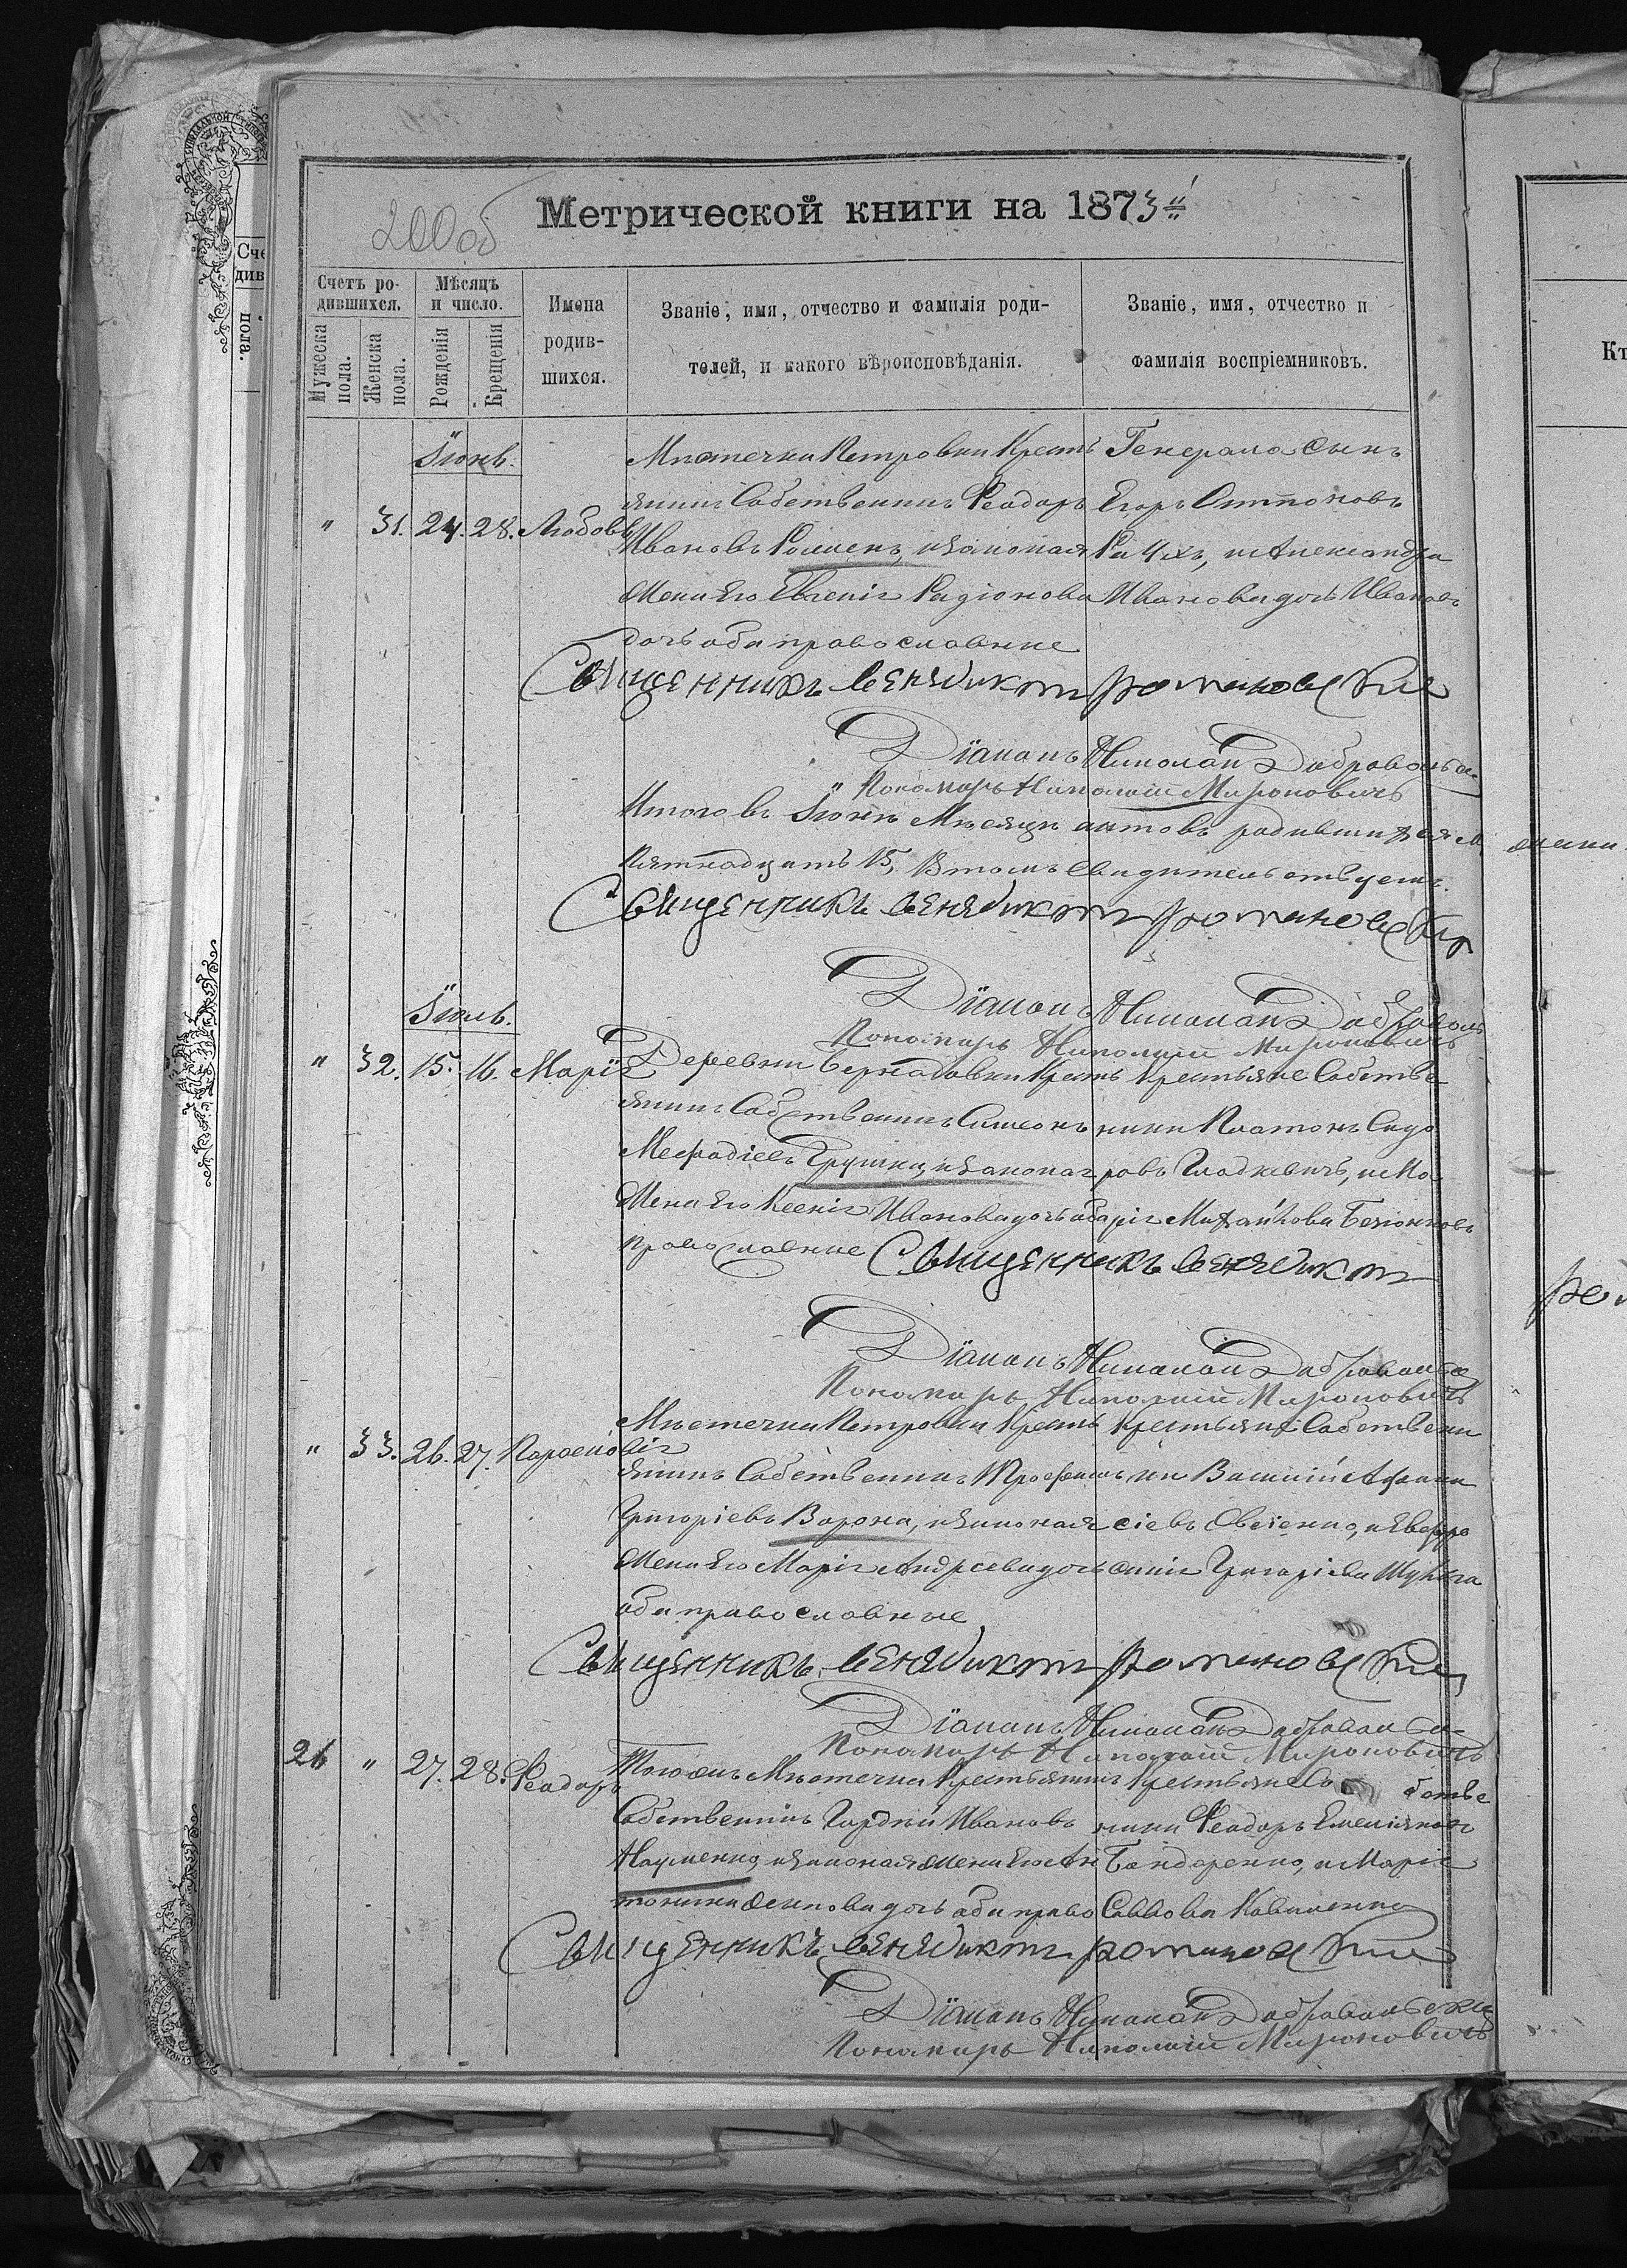 200об
Метрической книги на 1873й
Счетъ ро-
дившихся.
Мужеска пола.
Женска пола.
Мѣсяцъ
и число.
Рожденія
Крещенія
Имена
родив-
шихся.
Званіе, имя, отчество и фамилія роди-
телей, и какого вѣроисповѣданія.
Званіе, имя, отчество и
фамилія воспріемниковъ.
Іюнь.
" 31. 24. 28. Любовь
Мѣстечка Петровки Кресть
янинъ Собственникъ Феодоръ
Ивановъ и законная
Жена Его Евгенія Радіонова
дочь оба православные
Генерала Сынъ
Егоръ Оттоновъ
Раухъ, и Александра
Иванова дочь
Священникъ Венедиктъ Романовскій
Діаконъ Николай
Пономарь Николай Мироновичъ
Итого въ Іюнѣ Мѣсяцѣ актовъ родившихся
пятнадцать 15, Въ томъ свидительствуемъ.
Священникъ Венедиктъ Романовскій
Діаконъ Николай
Пономарь Николай Мироновичъ
Іюль.
" 32. 15. 16. Марія
Деревни Бернадовки Кресть
янинъ Собственникъ Симеонъ
Мефодіевъ Грушка, и законная
Жена Его Ксенія Иванова дочь оба
православные
Крестьяне Собстве
ники Платонъ Сидо
ровъ Гладкевичъ, и Ма
рія
Священникъ Венедиктъ
Діаконъ Николай
Пономарь Николай Мироновичъ
" 33. 26. 27. Параскевія
Мѣстечка Петровки Кресть
янинъ Собственникъ Трофимъ
Григоріевъ Ворона, и законная
Жена Его Марія Андреева дочь
оба православные
Крестьяне Собствени
ки Василій Афана
сіевъ Овсіенко, и Евфро
синія Григоріева
Священникъ Венедиктъ Романовскій
Діаконъ Николай
Пономарь Николай Мироновичъ
26 " 27. 28. Феодоръ
Того жъ Мѣстечка Крестьянинъ
Собственникъ Гордѣй Ивановъ
Науменко, и законная Жена Его Ан
тонина Осипова дочь оба право
Крестьяне Собстве
ники Феодоръ Емеліановъ
Бондаренко, и Марія
Саввова Коваленко
Священникъ Венедиктъ Романовскій
Діаконъ Николай
Пономарь Николай Мироновичъ